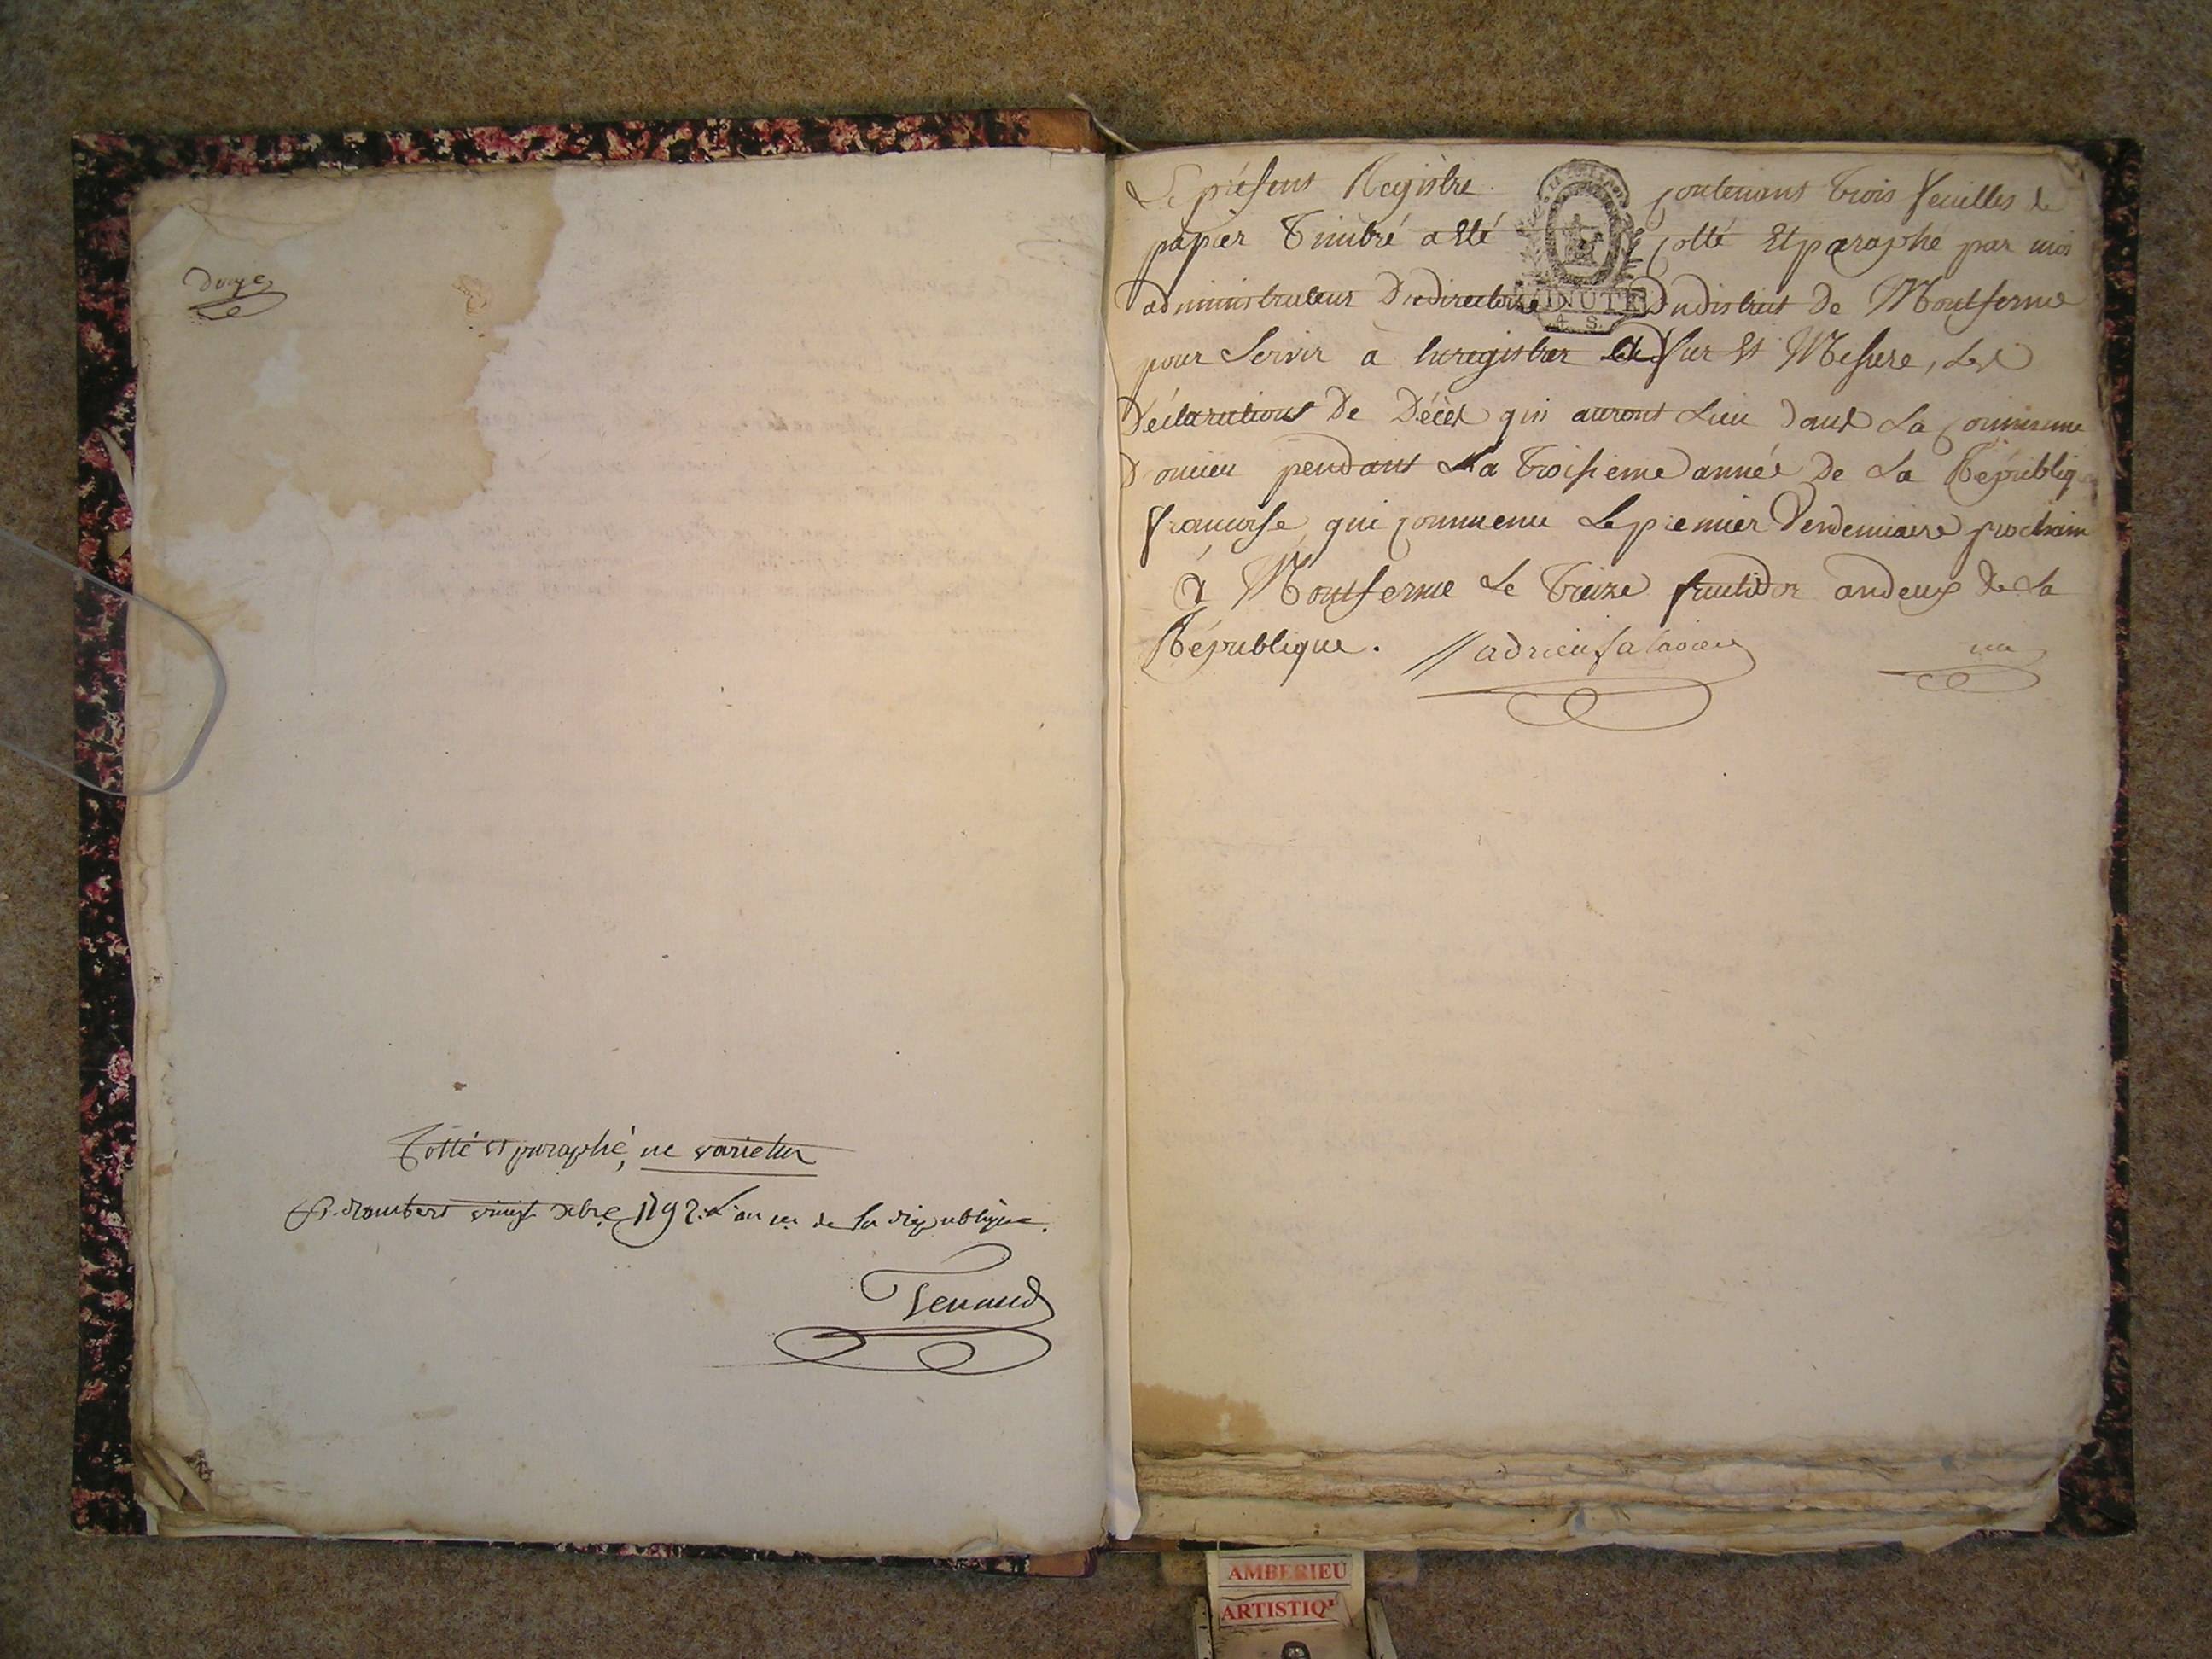 Douze
Cotté et paraphé, ne varietur
St. Rambert vingt Xbre 1792. L'an 1er. de la république.
Tenand
Le présent Registre contenant trois feuilles de
papier timbré a Eté cotté Et paraphé par moi
administrateur Du directoire Du district De Montferme
pour Servir à Enregistrer Sur Et Mesure, Les
Déclarations De Décès qui auront Lieu dans La Commune
Doncieu pendant La troisieme année De La Républiq
françoise, qui commence Le premier Vendemiaire prochain
à Montferme Le treize fructidor an deux de La
République.
MINUTE
4. S.
AMBERIEU
ARTISTIQ